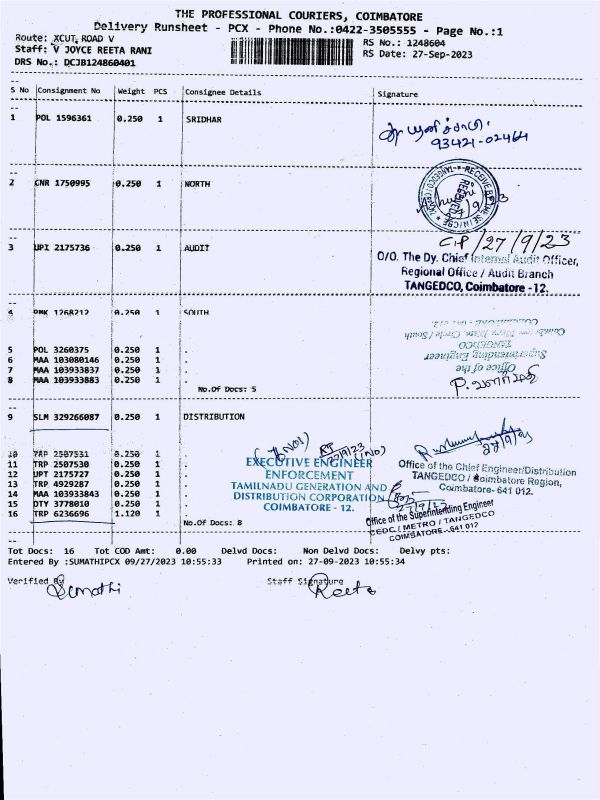 THE PROFESSIONAL COURIERS, COIMBATORE
Delivery Runsheet - PCX - Phone No.:0422-3505555 - Page No.:1
Route: XCUT ROAD V
RS No.: 1248604
Staff: V JOYCE REETA RANI
RS Date: 27-Sep-2023
DRS No.: DCJB124860401
S No Consignment No Weight PCS Consignee Details Signature
1 POL 1596361 0.250 1 SRIDHAR
93421-02464
2 CNR 1750995 0.250 1 NORTH
3 UPI 2175736 0.250 1 AUDIT
27/9/23
O/O. The Dy. Chief Internal Audit Officer,
Regional Office / Audit Branch
TANGEDCO, Coimbatore - 12.
4 1268212 0.250 1 SOUTH
5 POL 3260375 0.250 1 .
6 MAA 103080146 0.250 1 .
7 MAA 103933837 0.250 1 .
8 MAA 103933883 0.250 1 .
No.Of Docs: 5
Office of the
Superintending Engineer
TANGEDCO
9 SLM 329266087 0.250 1 DISTRIBUTION
10 2507531 0.250 1 .
11 TRP 2507530 0.250 1 .
12 UPT 2175727 0.250 1 .
13 TRP 4929287 0.250 1 .
14 MAA 103933843 0.250 1 .
15 DTY 3778010 0.250 1 .
16 TRP 6236696 1.120 1 .
No.Of Docs: 8
EXECUTIVE ENGINEER
ENFORCEMENT
TAMILNADU GENERATION AND
DISTRIBUTION CORPORATION
COIMBATORE - 12.
27/9/23
Office of the Chief Engineer/Distribution
TANGEDCO / Coimbatore Region,
Coimbatore- 641 012.
Office of the Superintending Engineer
CEDC / METRO / TANGEDCO
COIMBATORE - 641 012
Tot Docs: 16 Tot COD Amt: 0.00 Delvd Docs: Non Delvd Docs: Delvy pts:
Entered By :SUMATHIPCX 09/27/2023 10:55:33 Printed on: 27-09-2023 10:55:34
Verified By Staff Signature
Sumathi Reeta